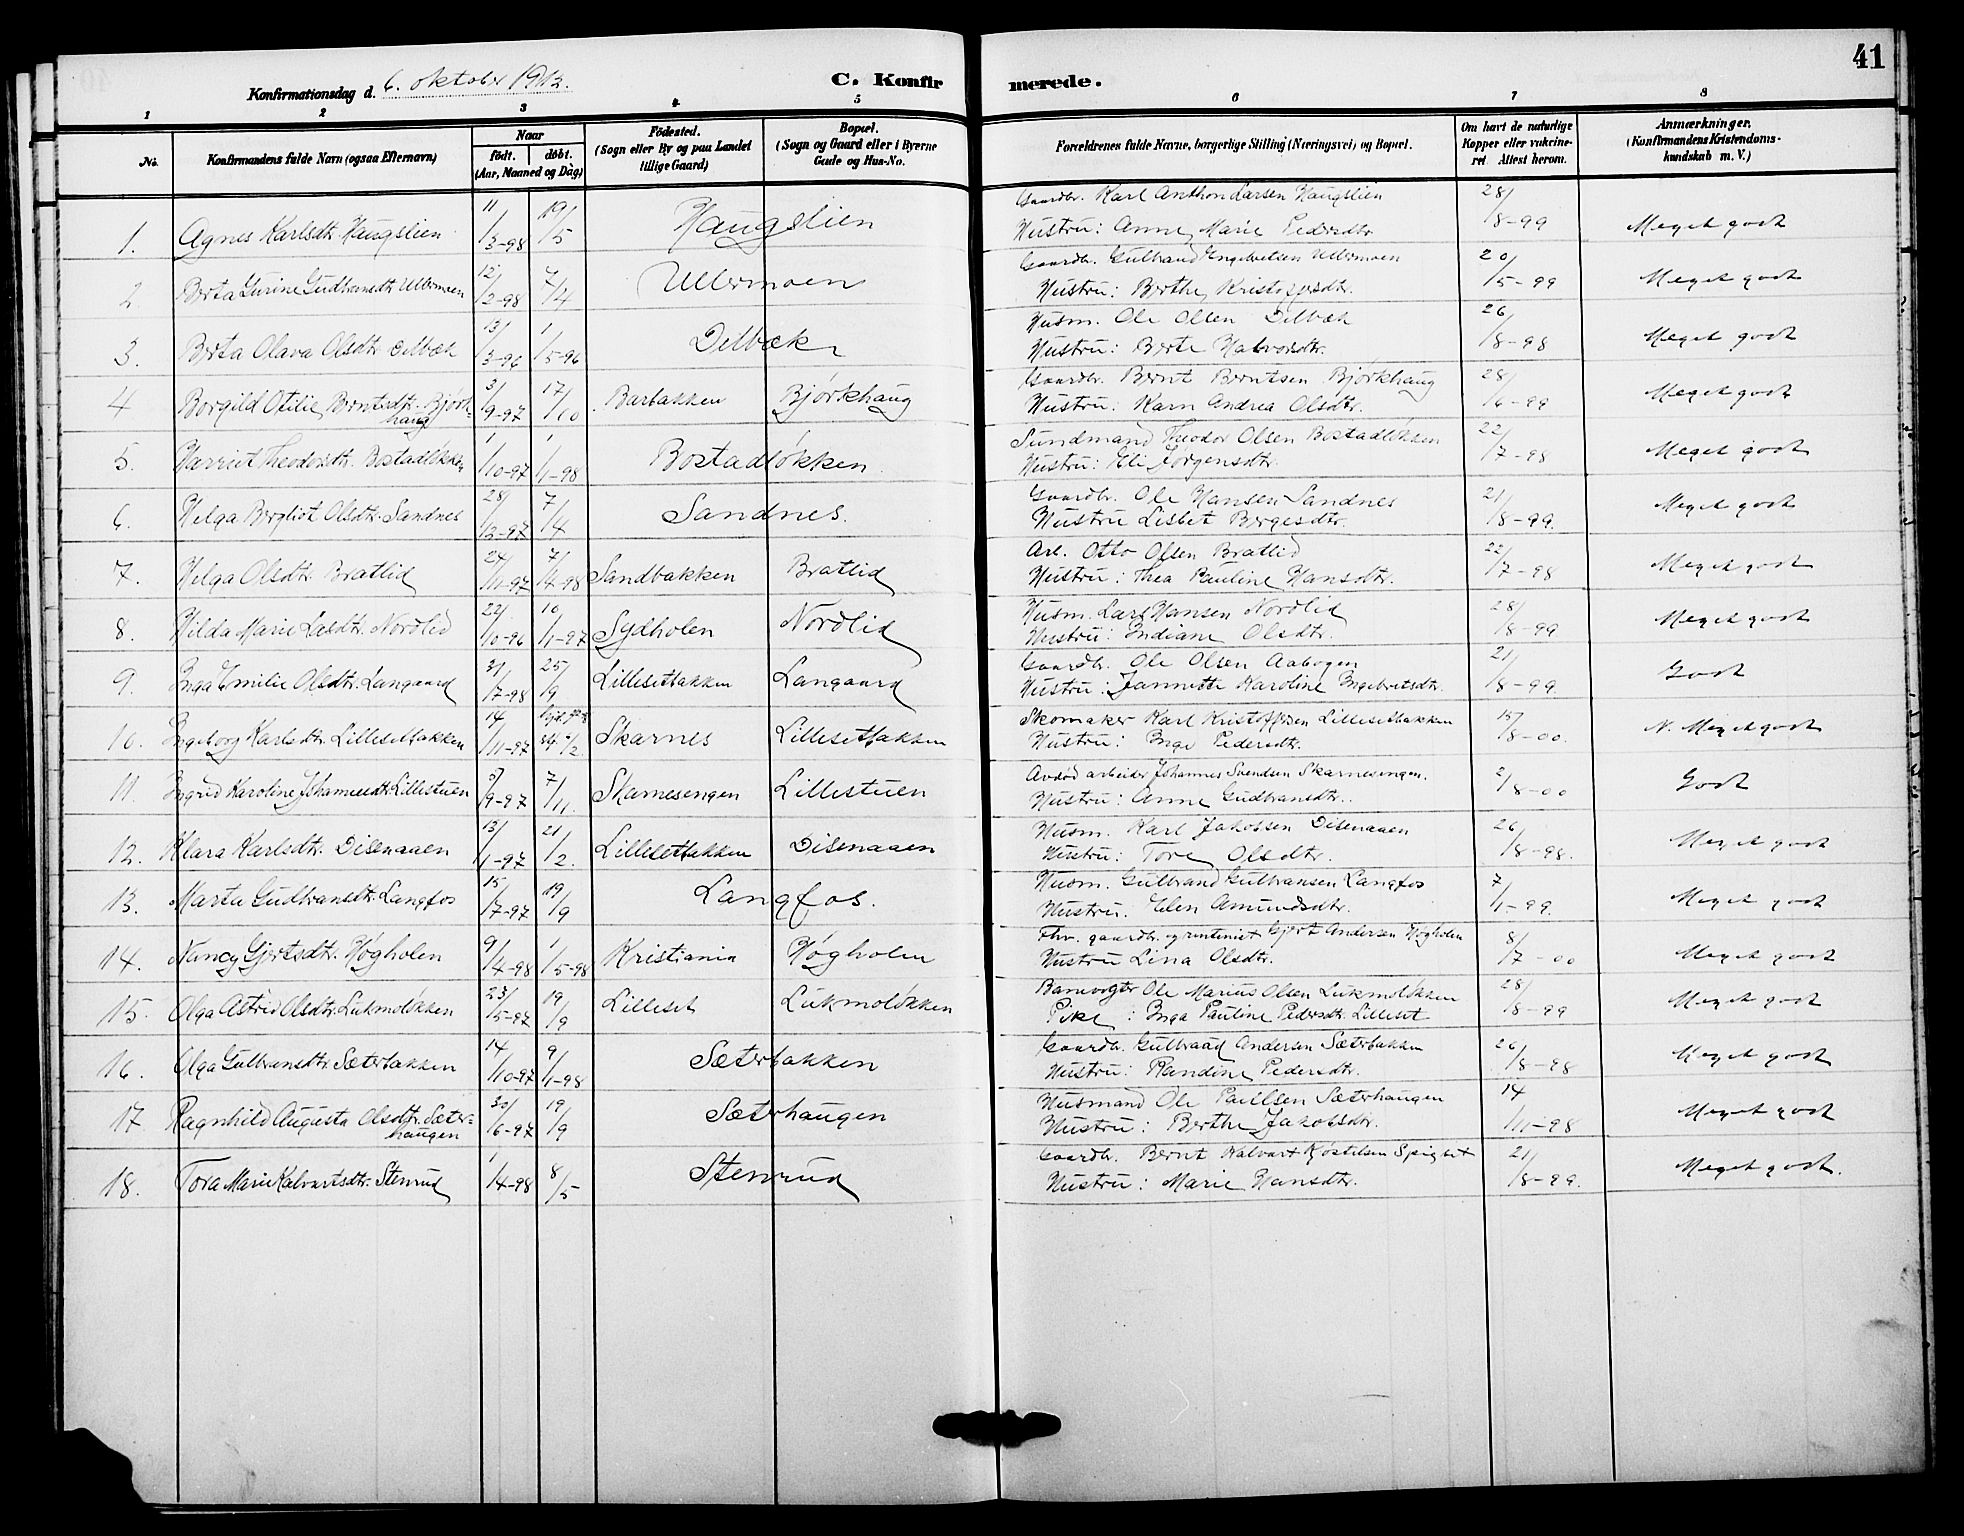 41
Konfirmationsdag d. 6. oktober 1912.
C. Konfirmerede.
1 2 3 4 5 6 7 8
No. Konfirmandens fulde Navn (ogsaa Efternavn) Naar født. døbt. (Aar, Maaned og Dag) Fødested. (Sogn eller By og paa Landet tillige Gaard) Bopæl. (Sogn og Gaard eller i Byerne Gade og Hus-No. Forældrenes fulde Navne, borgerlige Stilling (Næringsvei) og Bopæl. Om havt de naturlige Kopper eller vakcineret. Attest herom. Anmærkninger. (Konfirmandens Kristendomskundskab m. V.)
1. Agnes Karlsdtr. Haugslien 11/3-98 19/5 Haugslien Gaardbr. Karl Anthon Larsen Haugslien 28/8-99 Meget godt
Hustru: Anne Marie Pedersdtr.
2. Berta Gurine Gudbransdtr. Ullermoen 12/2-98 7/4 Ullermoen Gaardbr. Gulbrand Engebretsen Ullermoen 20/5-99 Meget godt
Hustru: Berthe Kristofersdtr.
3. Berta Olava Olsdtr. Delbæk 13/3-96 1/5-96 Delbæk Husm. Ole Olsen Delbæk 26/8-98 Meget godt
Hustru: Berte Halvorsdtr.
4 Borgild Otilie Berntsdtr. Bjørkhaug 3/9-97 17/10 Barbakken Bjørkhaug Gaardbr. Bernt Berntsen Bjørkhaug 28/6-99 Meget godt
Hustru: Karn Andrea Olsdtr.
5. Harriet Theodorsdtr. Bostadløkken 1/10-97 1/1-98 Bostadløkken Sundmand Theodor Olsen Bostadløkken 22/7-98 Meget godt
Hustru: Eli Jørgensdtr.
6. Helga Bergliot Olsdtr. Sandnes 28/12-97 7/4 Sandnes. Gaardbr. Ole Hansen Sandnes 21/8-99. Meget godt
Hustru Lisbet Bergesdtr.
7. Helga Olsdtr. Bratlid 24/11-97 7/4-98 Sandbakken Bratlid Arb. Otto Olsen Bratlid 22/7-98 Meget godt
Hustru: Thea Pauline Hansdtr.
8. Hilda Marie Lasdtr. Nordlid 22/10-96 10/1-97 Sydholen Nordlid Husm. Lars Hansen Nordlid 28/8-99 Meget godt
Hustru: Indiane Olsdtr.
9. Inga Emilie Olsdtr. Langaard 31/7-98 25/9 Lillesetbakken Langaard Gaardbr. Ole Olsen Aabogen 21/8-99. Godt
Hustru: Jannette Karoline Ingebretsdtr.
10. Ingeborg Karlsdtr. Lillesetbakken 14/11-97 Skarnes Lillesetbakken Skomaker Karl Kristoffersen Lillesetbakken 15/8-00. N. Meget godt
Hustru: Inga Pedersdtr.
11. Ingrid Karoline Johannesdtr. Lillestuen 5/9-97 7/11. Skarnesengen Lillestuen Avdød arbeider Johannes Svendsen Skarnesengen. 2/8-00 Godt
Hustru: Anne Gudbransdtr.
12. Klara Karlsdtr. Disenaaen 13/1-97 21/2. Lillesetbakken Disenaaen Husm. Karl Jakobsen Disenaaen 26/8-98. Meget godt
Hustru: Tore Olsdtr.
13. Marta Gudbransdtr. Langfos 15/7-97 19/9 Langfos. Husm. Gulbrand Gulbransen Langfos 7/1-99. Meget godt
Hustru. Elen Amundsdtr.
14. Nancy Gjertsdtr. Høgholen 9/4-98 1/5-98 Kristiania Høgholen Fhv. gaardbr. og rentenist Gjert Andersen Høgholen 8/7-00 Meget godt
Hustru Lina Olsdtr.
15. Olga Astrid Olsdtr. Lukmoløkken 23/5-97 19/9 Lilleset Lukmoløkken Banevogter Ole Marius Olsen Lukmoløkken 28/8-99 Meget godt
Pike: Inga Pauline Pedersdtr. Lilleset
16. Olga Gulbransdtr. Sæterbakken 14/10-97 9/1-98 Sæterbakken Gaardbr. Gulbrand Andersen Sæterbakken 26/8-98 Meget godt
Hustru: Randine Pedersdtr.
17. Ragnhild Augusta Olsdtr. Sæterhaugen 30/6-97 19/9 Sæterhaugen Husmand Ole Paullsen Sæterhaugen 14/11-98 Meget godt
Hustru: Berthe Jakobsdtr.
18. Tora Marie Halvartsdtr. Stenrud 1/4-98 8/5 Stenrud Gaardbr. Bernt Halvart Køstelsen Spigset 21/8-99. Meget godt.
Hustru: Marie Hansdtr.